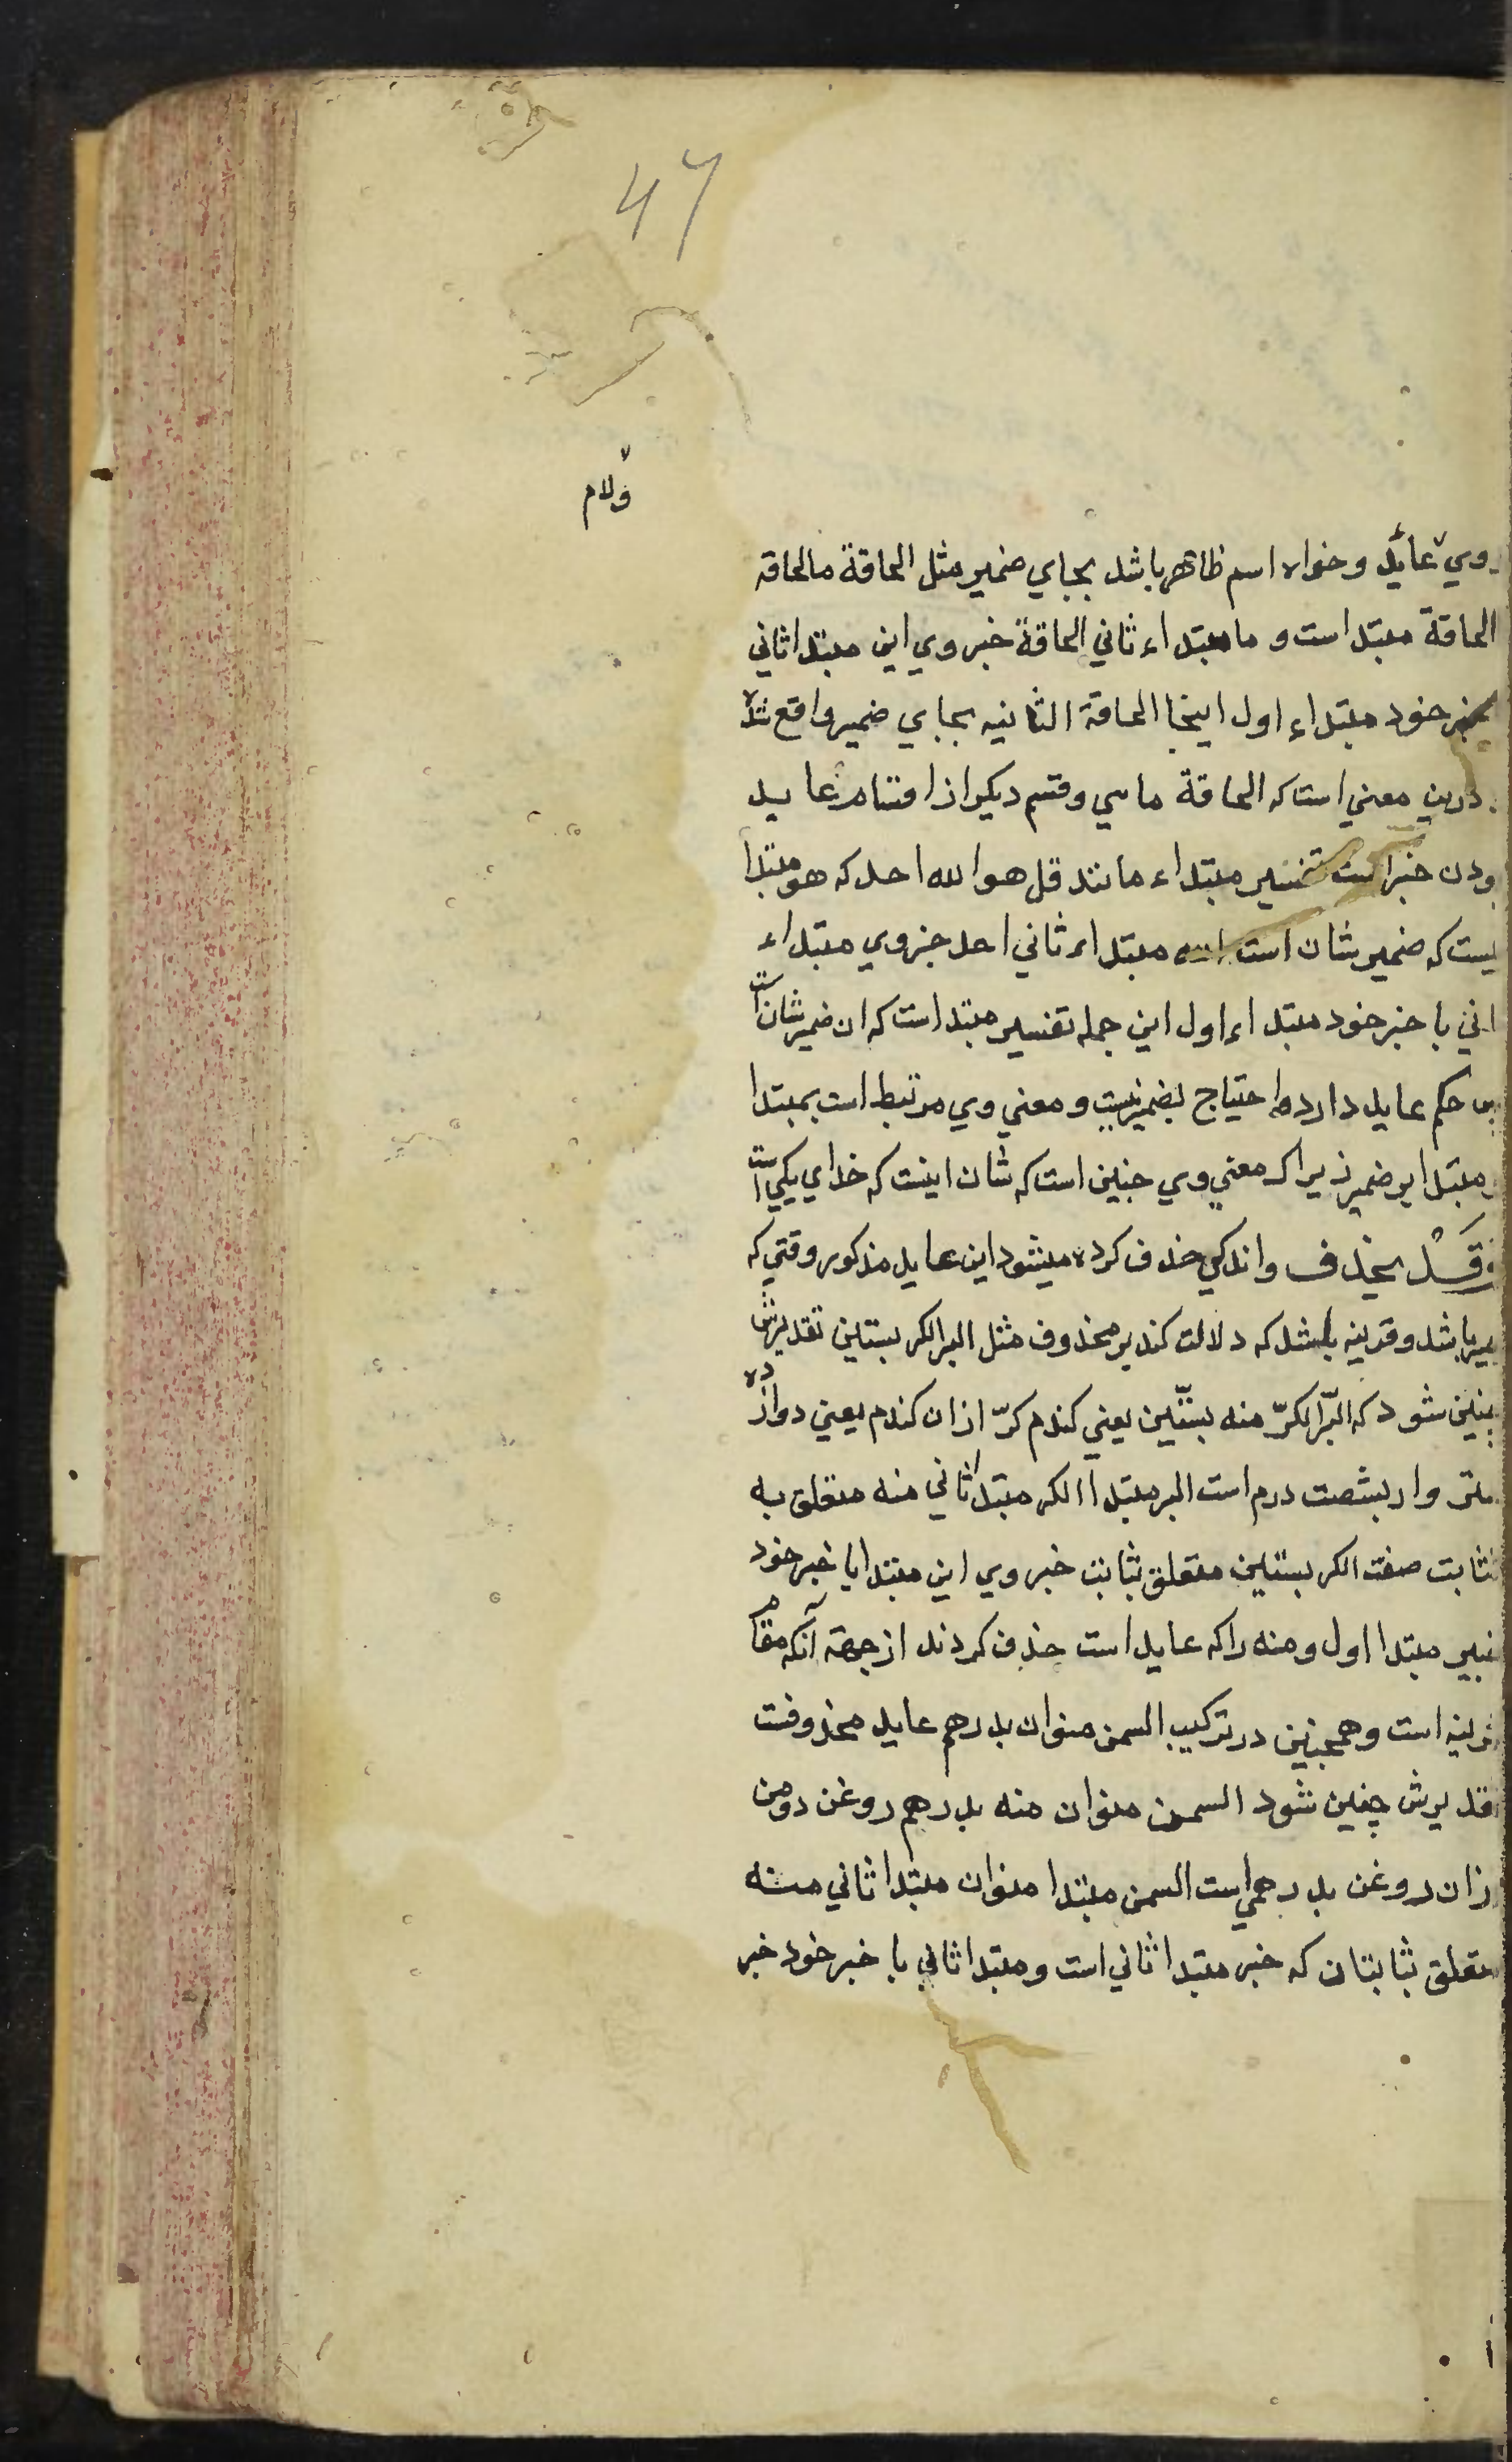 47
ولام
وي عائد وخواه اسم ظاهر باشد بجاي ضمير مثل الحاقة ما الحاقه
الحاقة مبتدا است و ما مبتداء ثاني الحاقة خبر وي اين مبتدا ثاني
خبر خود مبتداء اول اينجا الحاقة الثانيه بجاي ضمير واقع شده
درين معني است كه الحاقة ما هي وقسم ديكر از اقسام عايد
بودن خبر است تفسير مبتداء مانند قل هو الله احد كه هو مبتدا
يست كه ضمير شان است الله مبتداء ثاني احد خبر وي مبتداء
اني با خبر خود مبتداء اول اين جمله تفسير مبتدا است كه ان ضمير شان است
حكم عايد دارد و احتياج بضمير نيست و معني وي مرتبط است بمبتدا
مبتدا بر ضمير زيرا كه معني وي جنين است كه شان اينست كه خداي يكي است
وقد يحذف واندكي حذف كرده ميشود اين عايد مذكور وقتي كه
ير باشد وقرينه باشد كه دلالت كند بر محذوف مثل البر الكر بستين تقديرش
چنين شود كه البرّ الكرّ منه بستّين يعني كندم كرّ از ان كندم يعني دوازده
شتر وار بشصت درم است البر مبتدا الكر مبتدا ثاني منه متعلق به
ثابت صفت الكر بستين متعلق بثابت خبر وي اين مبتدا با خبر خود
خبر مبتدا اول ومنه را كه عايد است حذف كردند از جهة آنكه مقام
قرينه است وهمچنين در تركيب السمن منوان بدرهم عايد محذوفست
تقديرش چنين شود السمن منوان منه بدرهم روغن دو من
از ان روغن بدرهمي است السمن مبتدا منوان مبتدا ثاني منه
متعلق بثابتان كه خبر مبتدا ثاني است ومبتدا ثاني با خبر خود خبر